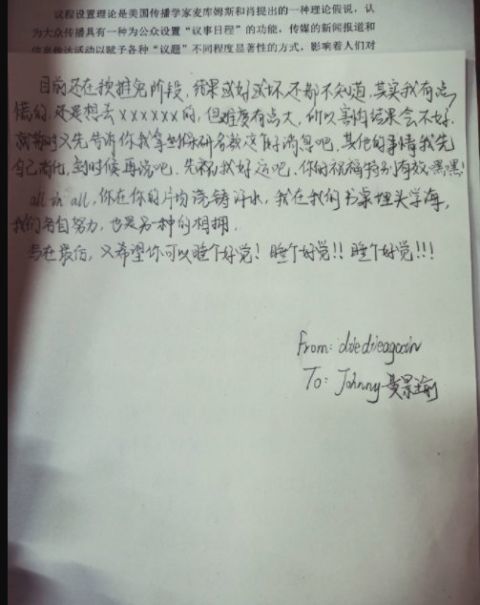 议程设置理论是美国传播学家麦库姆斯和肖提出的一种理论假说，认
为大众传播具有一种为公众设置“议事日程”的功能，传媒的新闻报道和
信息传达活动以赋予各种“议题”不同程度显著性的方式，影响着人们对
目前还在 阶段，结果或好或坏还都不知道，其实我有点
的，还是想去xxxxxx的，但难度有点大，所以害怕结果会不好.
就暂时又先告诉你我拿到保研名额这个好消息吧，其他的事情我先
自己消化，到时候再说吧.先祝我好运吧，你的祝福特别有效，嘿嘿!
all in all，你在你的片场流铸汗水，我在我的书桌埋头学海，
我们各自努力，也是另一种的相拥.
写在最后，又希望你可以睡个好觉！睡个好觉!! 睡个好觉!!!
from: diedieagain
To: Johnny 景瑜